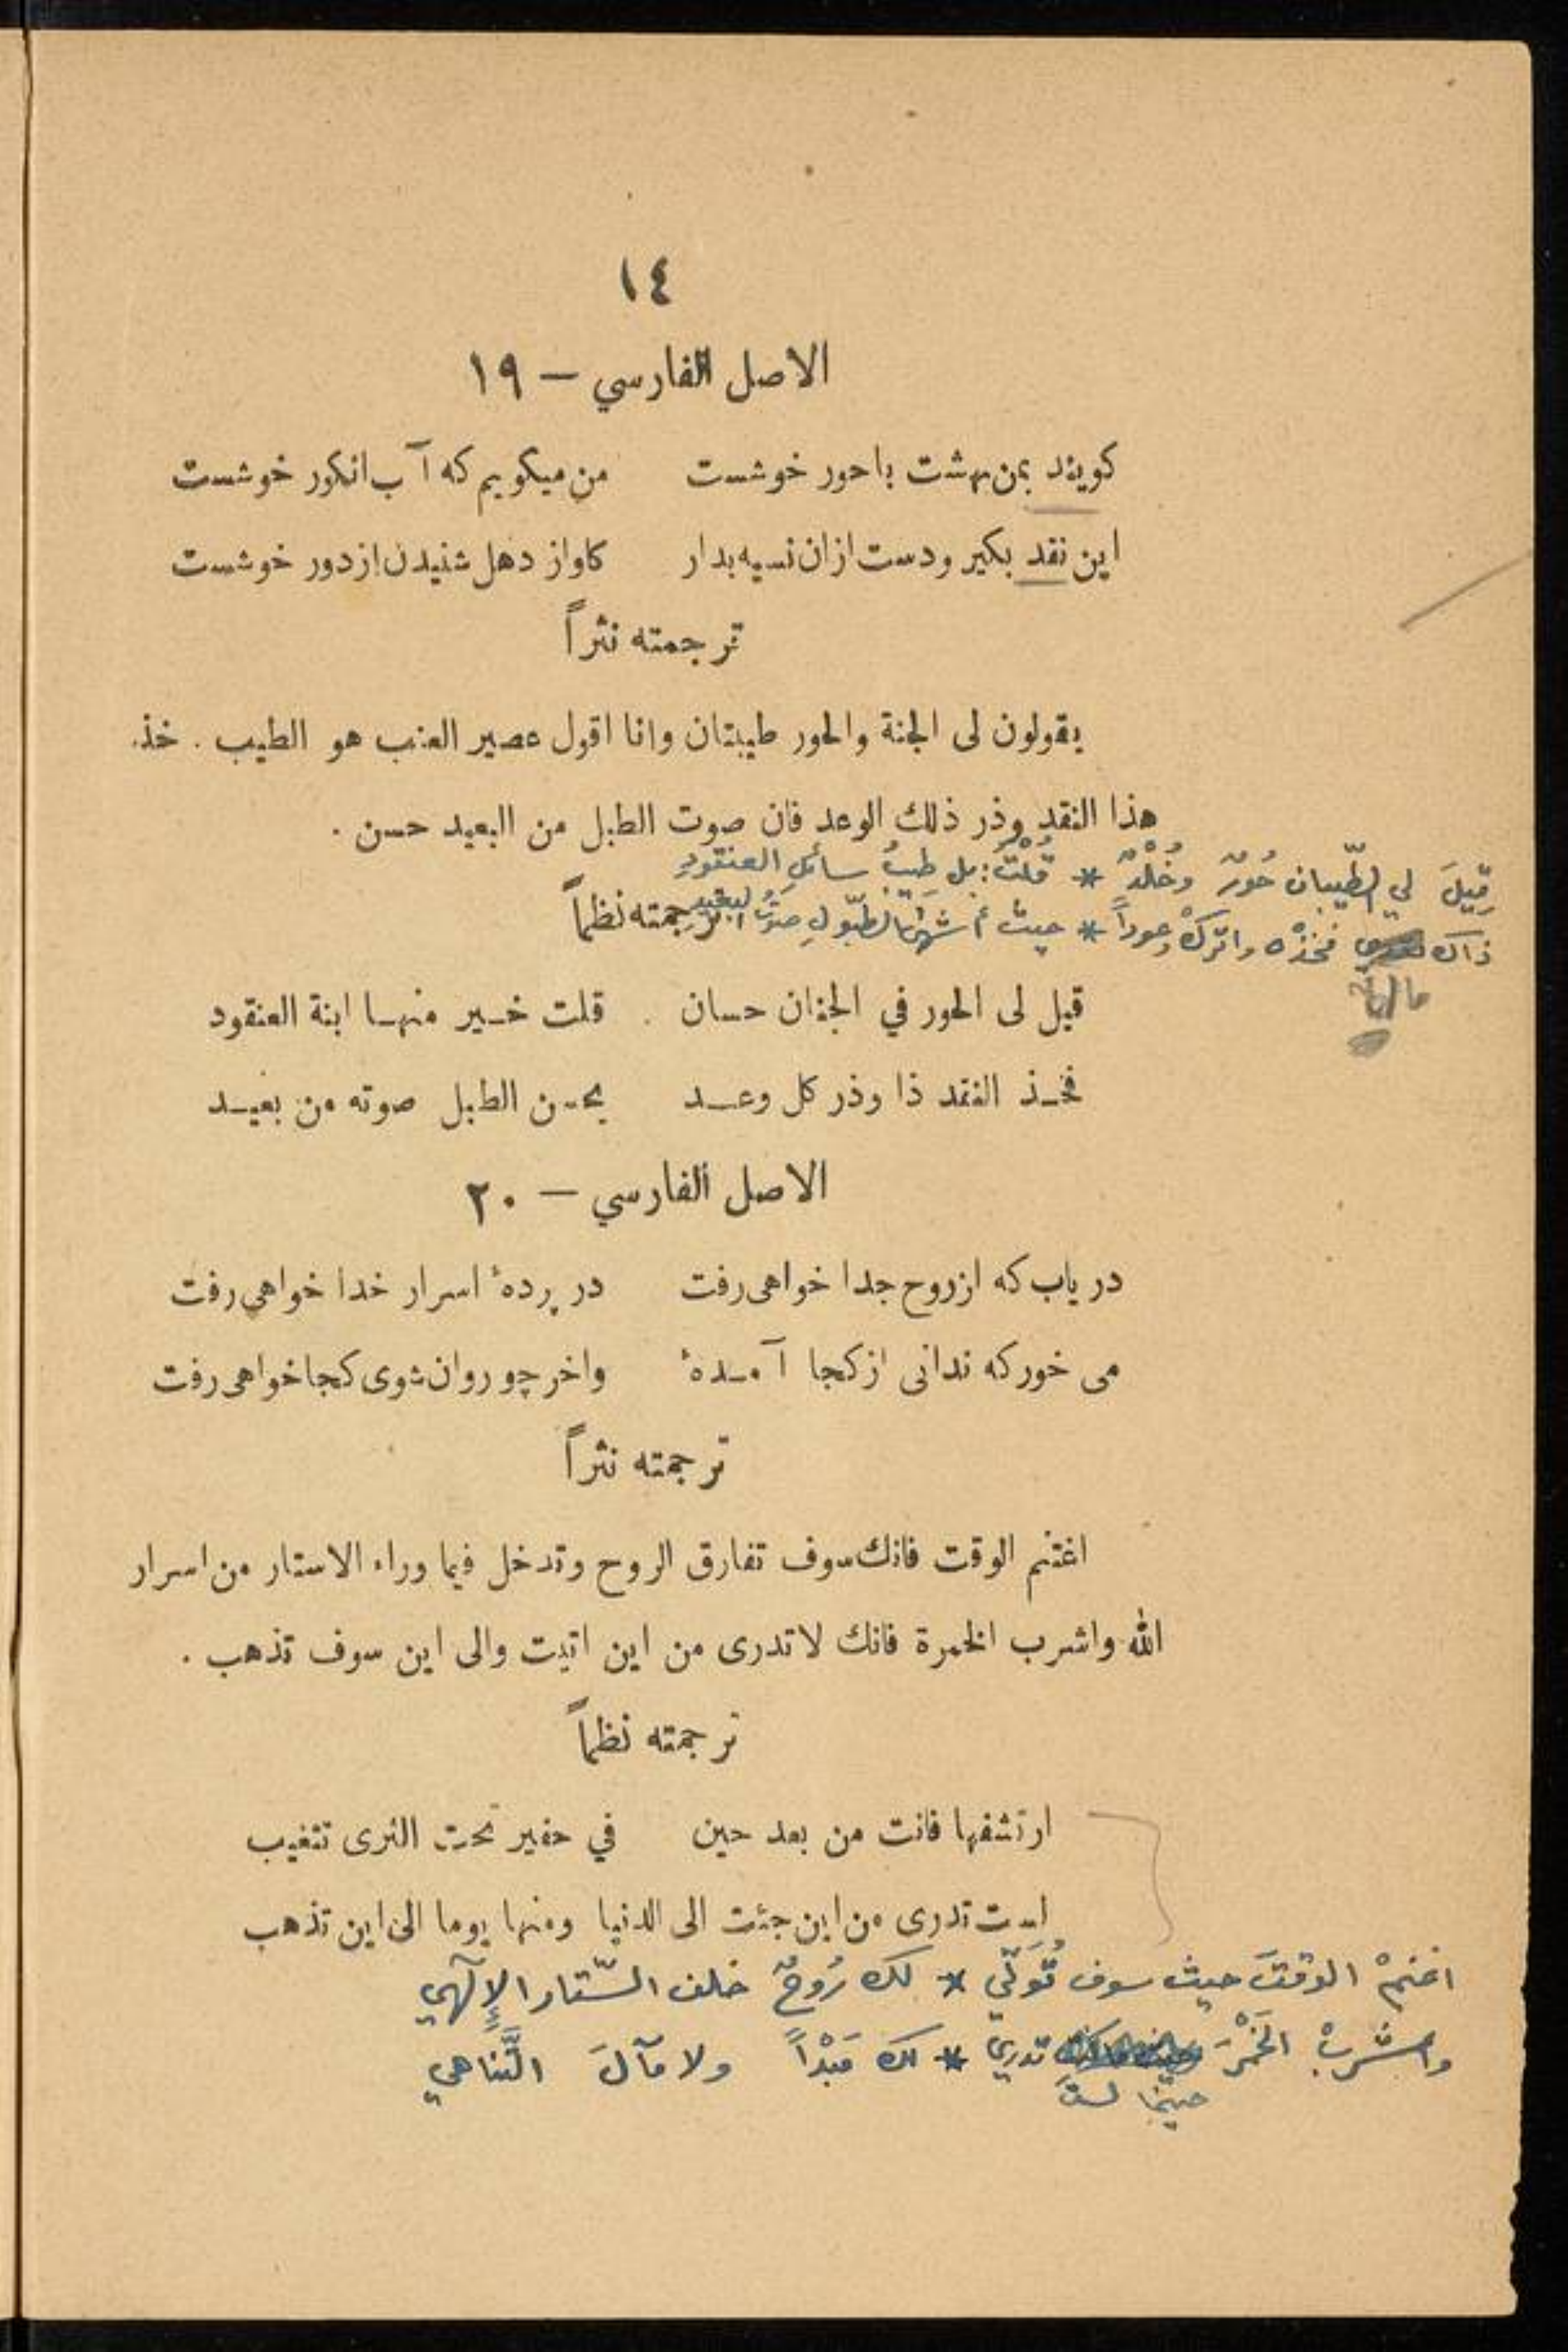 ١٤
الاصل الفارسي — ١٩
كويند بمن بهشت باحور خوشست من ميكويم كه آب انكور خوشست
اين نقد بكير ودست ازان نسيه بدار كاواز دهل شنيدن ازدور خوشست
ترجمته نثراً
يقولون لى الجنة والحور طيبتان وانا اقول عصير العنب هو الطيب . خذ
هذا النقد وذر ذلك الوعد فان صوت الطبل من البعيد حسن .
قِيلَ لي الطّيبان حُورٌ وخُلْدٌ * قُلْتُ: بل طِيبُ سائلِ العنقودِ
ذاك فخذْه واتركْ وعوداً * حيث الطبّولِ صوتُ البعيدِ
ترجمته نظماً
قيل لى الحور في الجنان حسان قلت خير منها ابنة العنقود
فخذ النقد ذا وذر كل وعد يحسن الطبل صوته من بعيد
الاصل الفارسي — ٢٠
درياب كه ازروح جدا خواهى رفت در پردهٔ اسرار خدا خواهي رفت
مى خوركه ندانى ازكجا آمدهٔ واخر چو روان شوى كجا خواهى رفت
ترجمته نثراً
اغتنم الوقت فانك سوف تفارق الروح وتدخل فيما وراء الاستار من اسرار
الله واشرب الخمرة فانك لاتدرى من اين اتيت والى اين سوف تذهب .
ترجمته نظماً
ارتشفها فانت من بعد حين في حفير تحت الثرى تتغيب
لست تدرى من اين جئت الى الدنيا ومنها يوما الى اين تذهب
اغنمْ الوقتَ حيث سوف تُوَلّي * لك رُوحٌ خلف السّتار الإلٓهيِ
واشربْ الخَمْرَ تدري * لك مَبْدأً ولا مآلَ التَّناهي
حينما لستَ